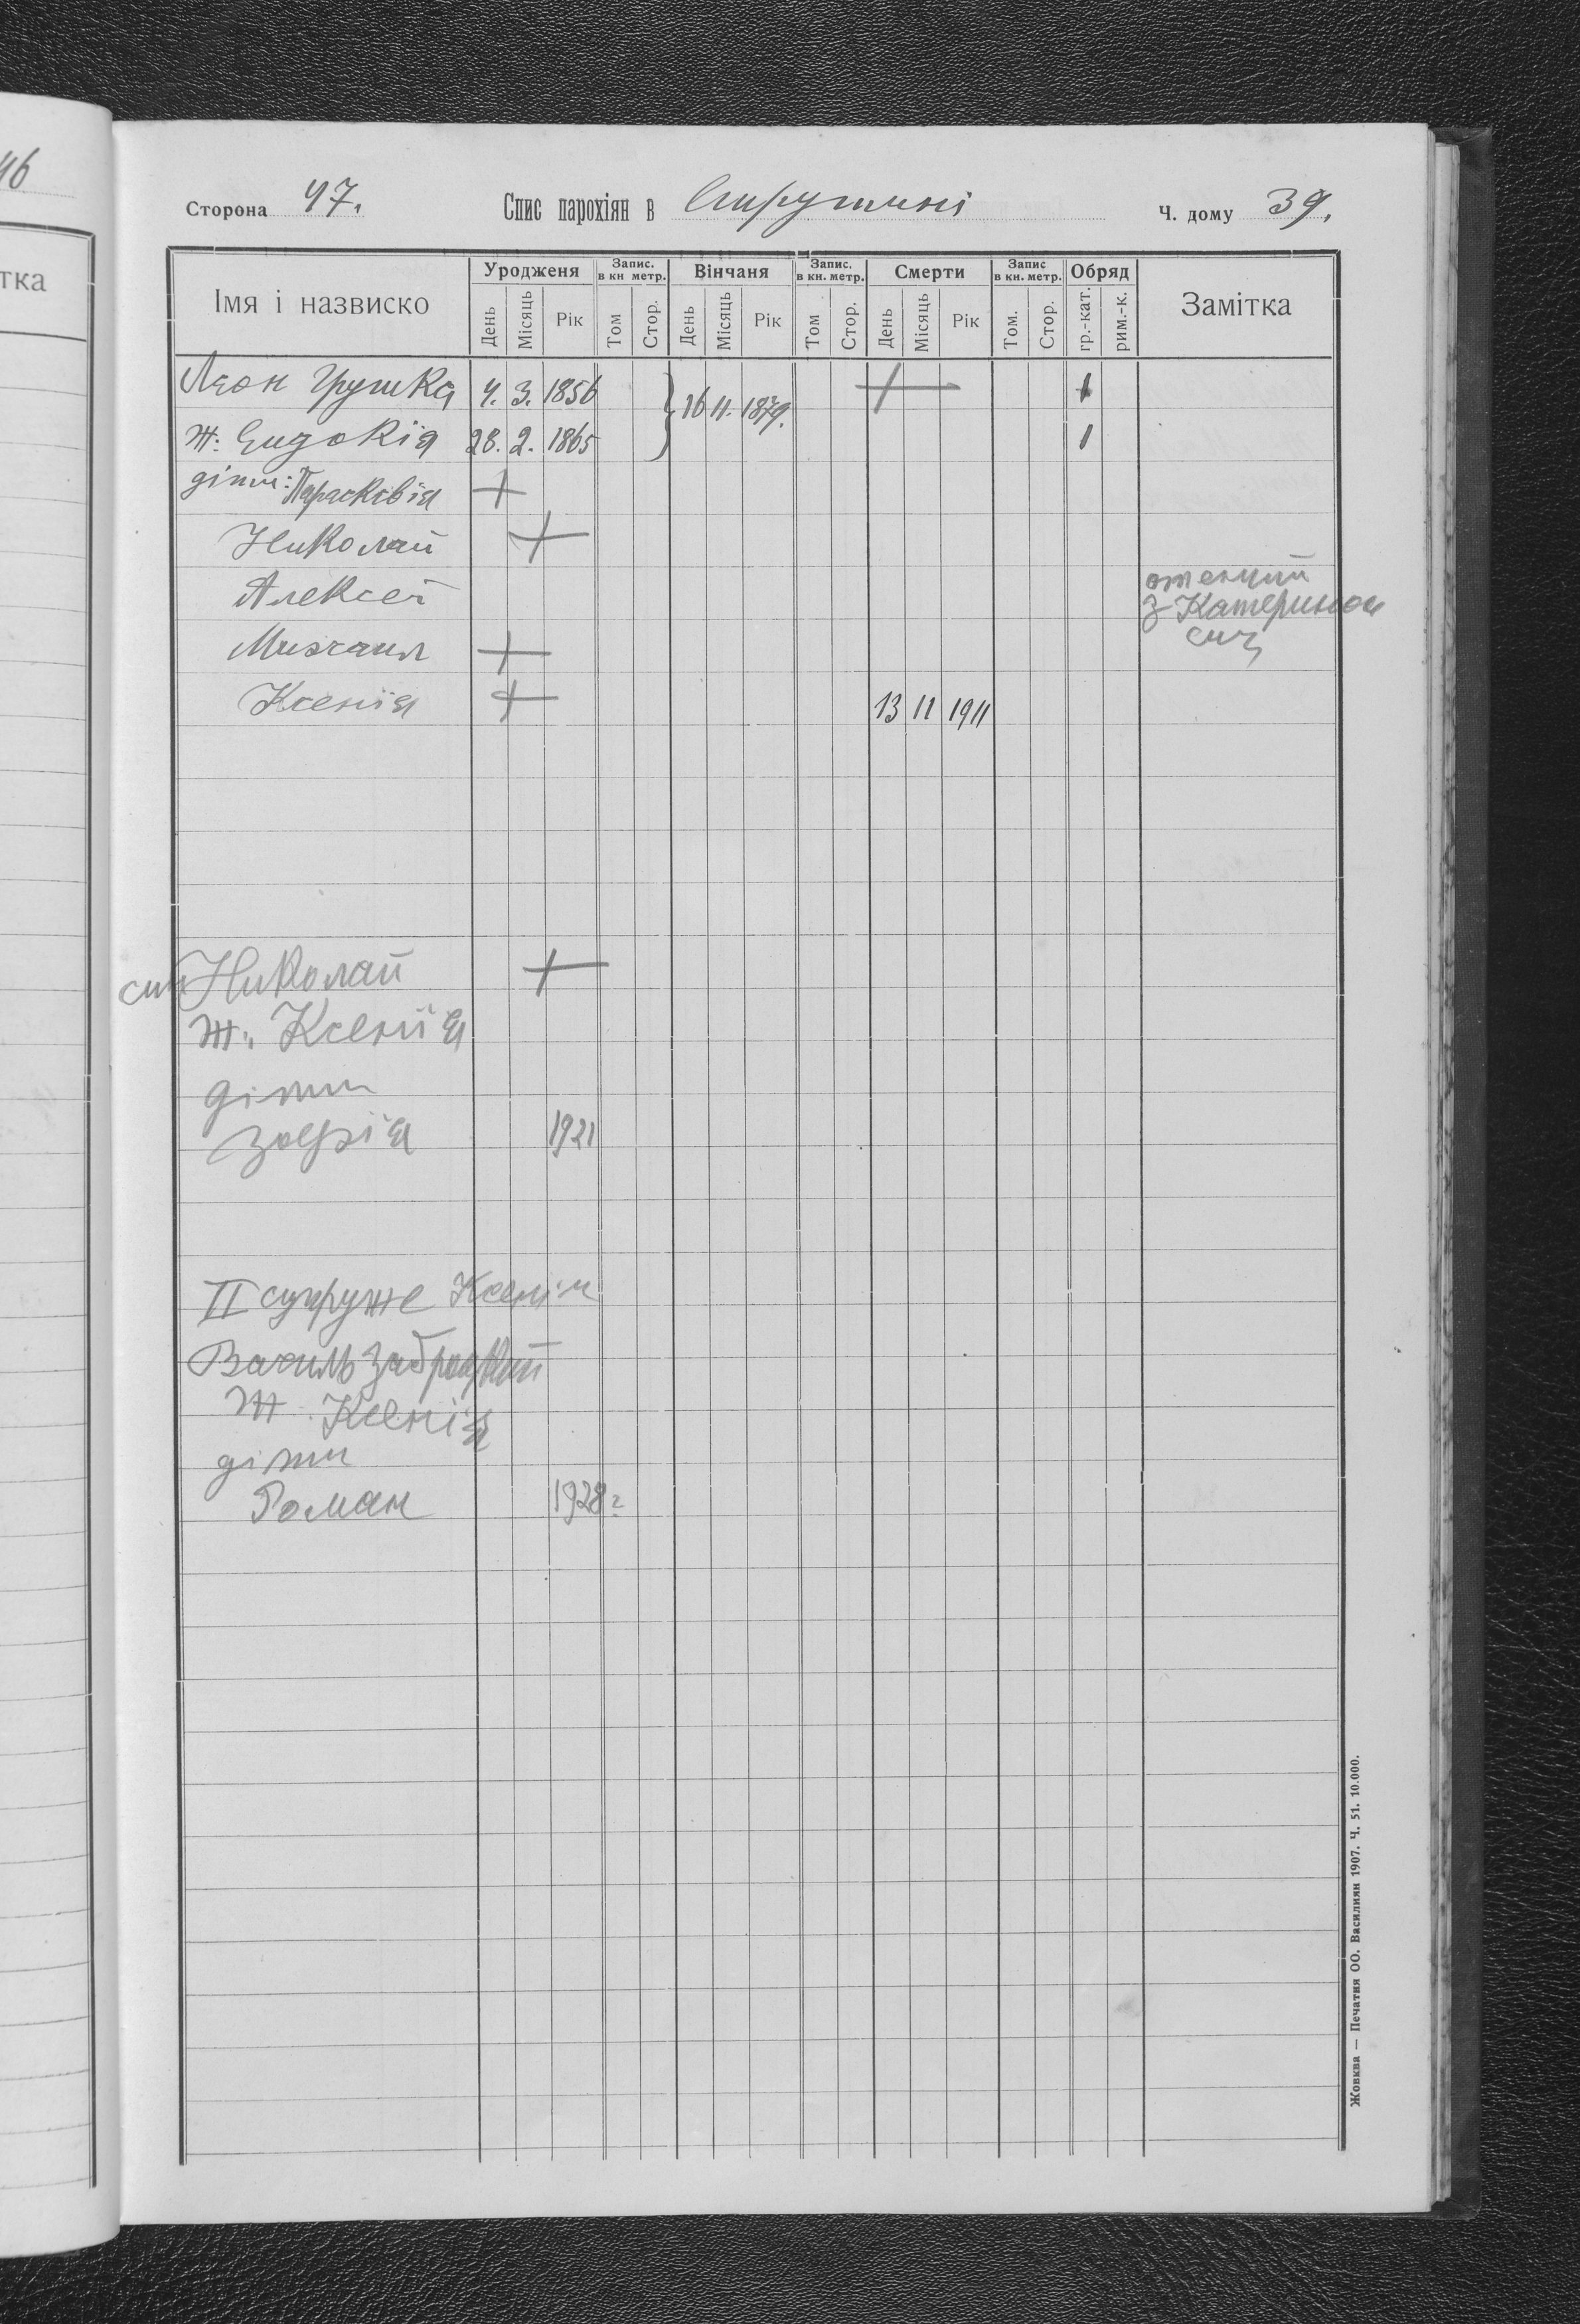 46
тка
Сторона 47. Спис парохіян в Ч. дому 39.
Імя і назвиско Уродженя Запис. в кн метр. Вінчаня Запис. в кн. метр. Смерти Запис в кн. метр. Обряд Замітка
День Місяць Рік Том Стор. День Місяць Рік Том Стор. День Місяць Рік Том. Стор. гр.-кат. рим.-к.
Леон Грушка 4. 3. 1856 16 11. 1879. + 1
ж: Евдокія 28. 2. 1865 1
діти: Парасквія +
Николай +
Алексей оженний
з Катериною
Михаил +
Ксенія + 13 11 1911
син Николай +
ж. Ксенія
діти
Зофія 1921
II супруже Ксенія
Василь Забродский
ж. Ксенія
діти
Роман 1928
Жовква — Печатня ОО. Василиян 1907. Ч. 51. 10.000.